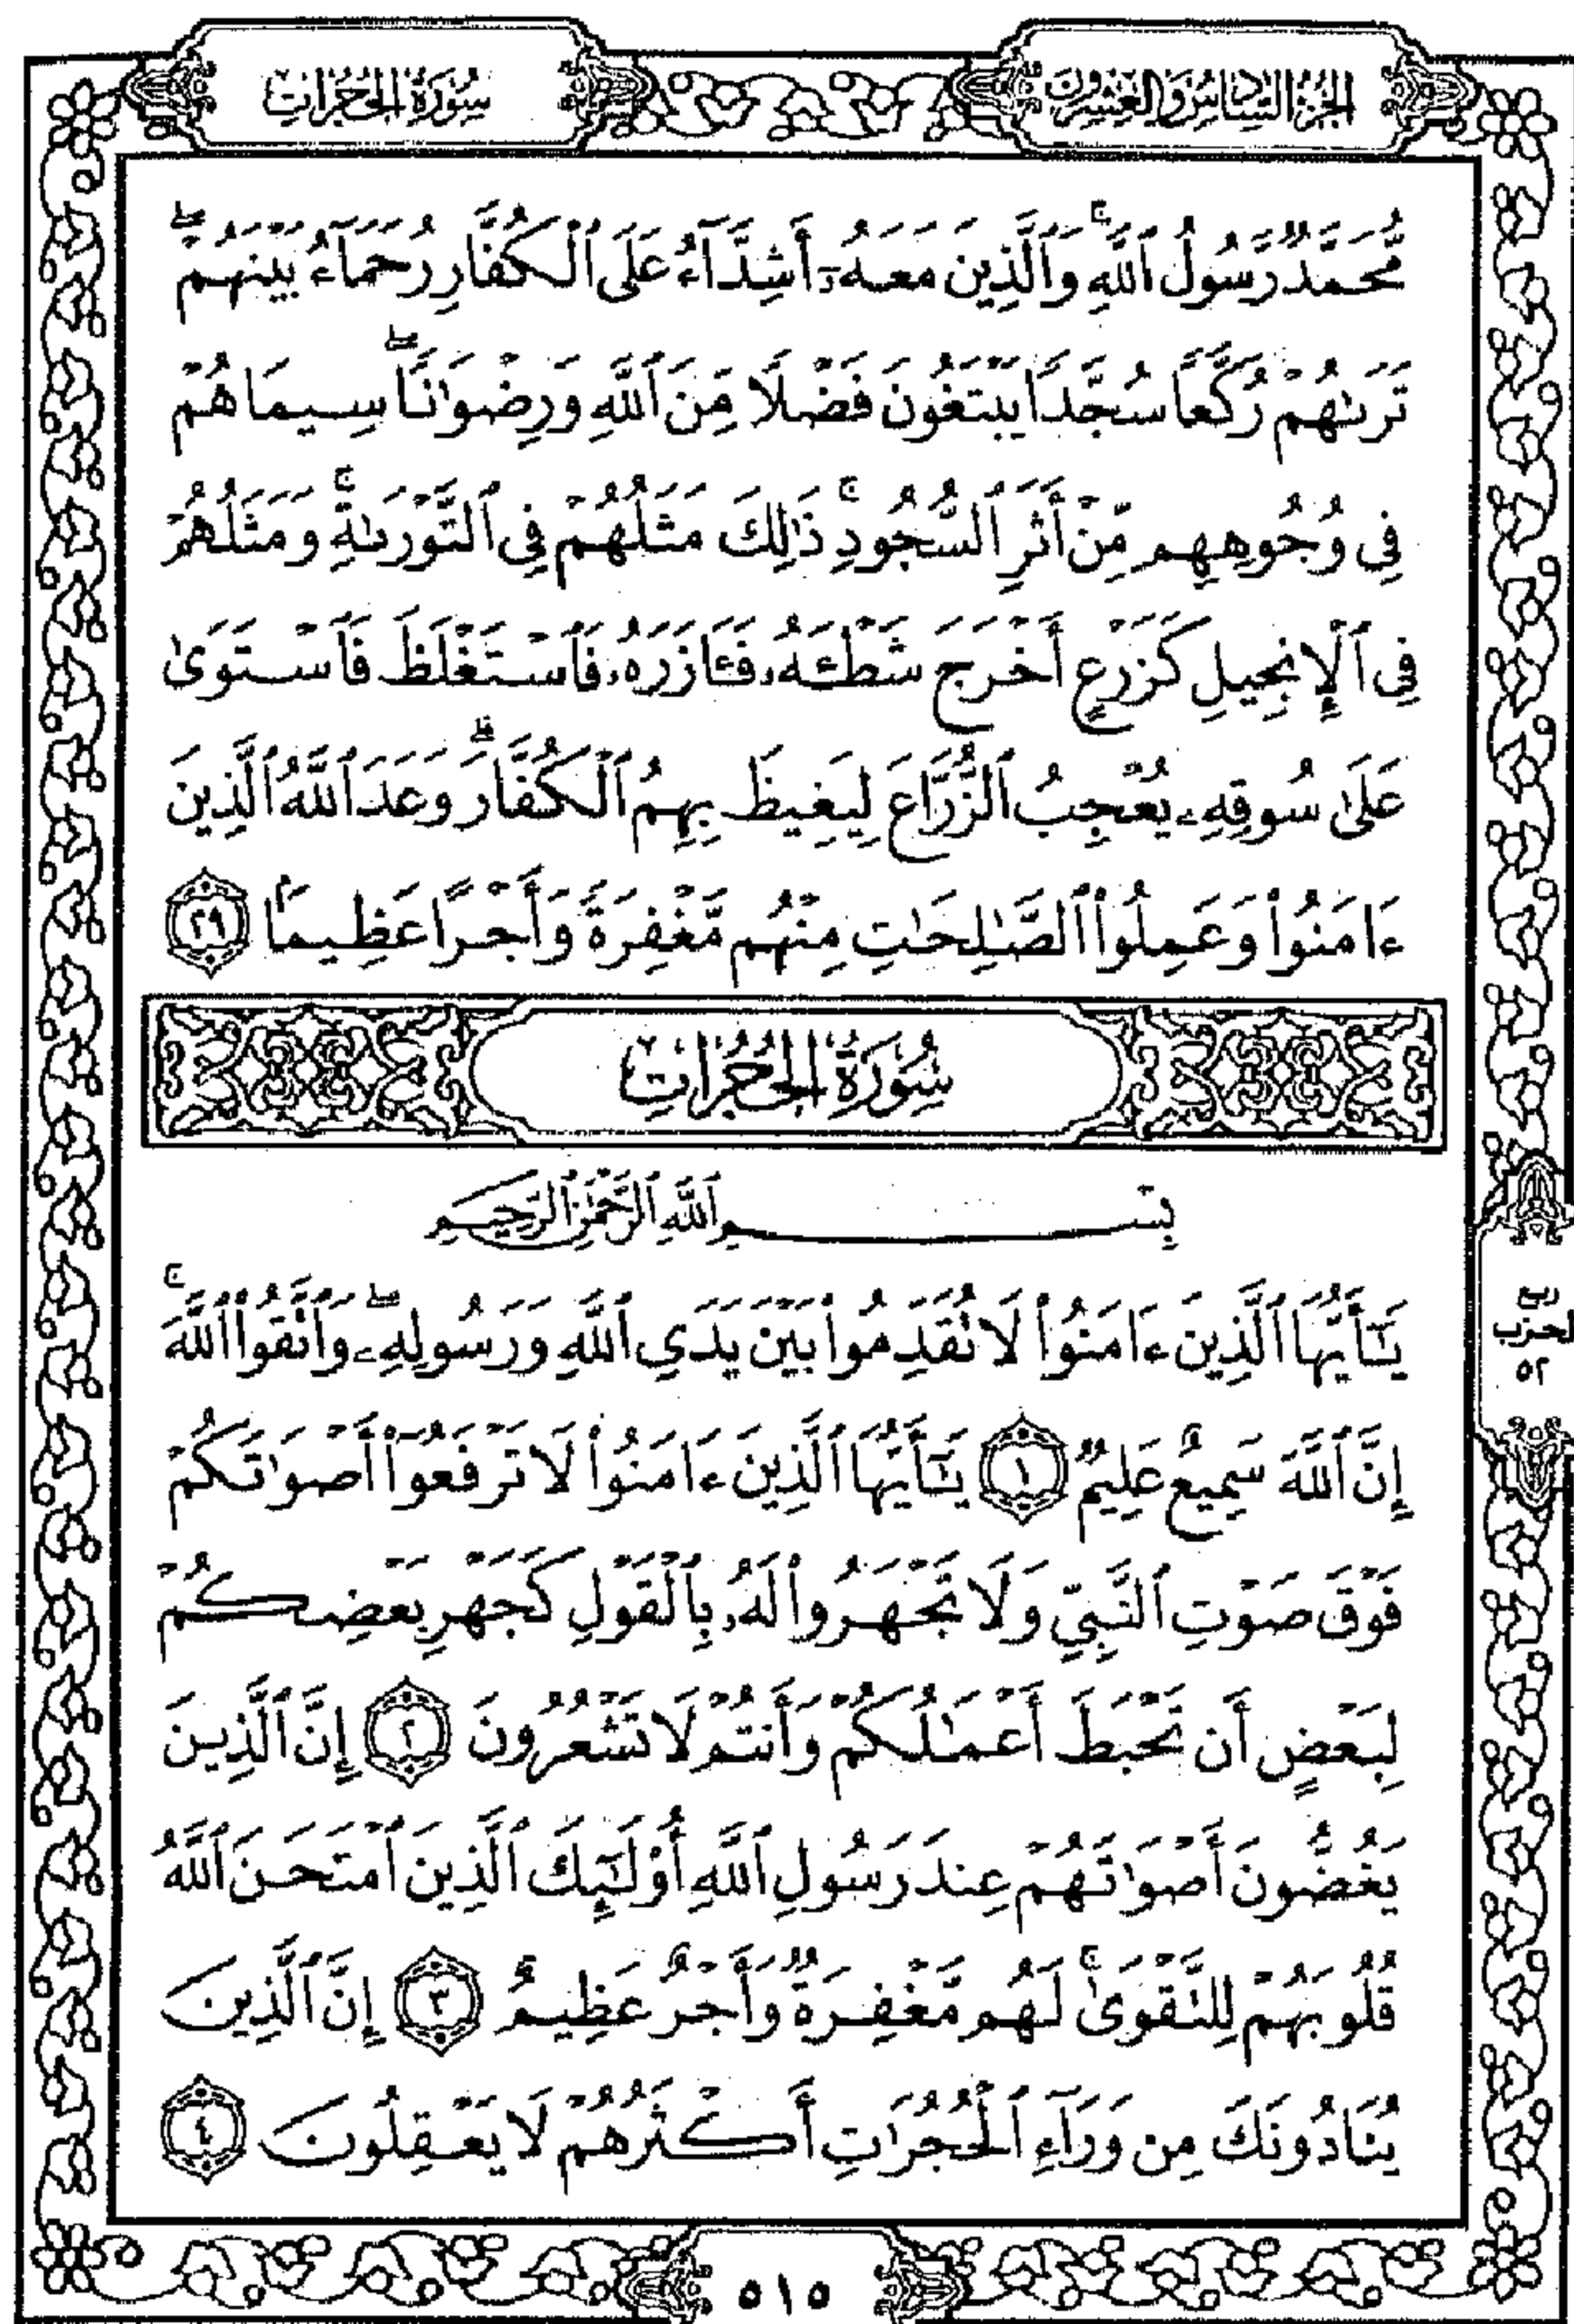 الجزء السادس والعشرون
سورة الحجرات
مُّحَمَّدٌ رَّسُولُ ٱللَّهِ ۚ وَٱلَّذِينَ مَعَهُۥٓ أَشِدَّآءُ عَلَى ٱلْكُفَّارِ رُحَمَآءُ بَيْنَهُمْ ۖ
تَرَىٰهُمْ رُكَّعًا سُجَّدًا يَبْتَغُونَ فَضْلًا مِّنَ ٱللَّهِ وَرِضْوَٰنًا ۖ سِيمَاهُمْ
فِى وُجُوهِهِم مِّنْ أَثَرِ ٱلسُّجُودِ ۚ ذَٰلِكَ مَثَلُهُمْ فِى ٱلتَّوْرَىٰةِ ۚ وَمَثَلُهُمْ
فِى ٱلْإِنجِيلِ كَزَرْعٍ أَخْرَجَ شَطْـَٔهُۥ فَـَٔازَرَهُۥ فَٱسْتَغْلَظَ فَٱسْتَوَىٰ
عَلَىٰ سُوقِهِۦ يُعْجِبُ ٱلزُّرَّاعَ لِيَغِيظَ بِهِمُ ٱلْكُفَّارَ ۗ وَعَدَ ٱللَّهُ ٱلَّذِينَ
ءَامَنُوا۟ وَعَمِلُوا۟ ٱلصَّٰلِحَٰتِ مِنْهُم مَّغْفِرَةً وَأَجْرًا عَظِيمًۢا ٢٩
سُورَةُ الحُجُرَاتِ
بِسْمِ ٱللَّهِ ٱلرَّحْمَٰنِ ٱلرَّحِيمِ
يَٰٓأَيُّهَا ٱلَّذِينَ ءَامَنُوا۟ لَا تُقَدِّمُوا۟ بَيْنَ يَدَىِ ٱللَّهِ وَرَسُولِهِۦ ۖ وَٱتَّقُوا۟ ٱللَّهَ ۚ
إِنَّ ٱللَّهَ سَمِيعٌ عَلِيمٌ ١ يَٰٓأَيُّهَا ٱلَّذِينَ ءَامَنُوا۟ لَا تَرْفَعُوٓا۟ أَصْوَٰتَكُمْ
فَوْقَ صَوْتِ ٱلنَّبِىِّ وَلَا تَجْهَرُوا۟ لَهُۥ بِٱلْقَوْلِ كَجَهْرِ بَعْضِكُمْ
لِبَعْضٍ أَن تَحْبَطَ أَعْمَٰلُكُمْ وَأَنتُمْ لَا تَشْعُرُونَ ٢ إِنَّ ٱلَّذِينَ
يَغُضُّونَ أَصْوَٰتَهُمْ عِندَ رَسُولِ ٱللَّهِ أُو۟لَٰٓئِكَ ٱلَّذِينَ ٱمْتَحَنَ ٱللَّهُ
قُلُوبَهُمْ لِلتَّقْوَىٰ ۚ لَهُم مَّغْفِرَةٌ وَأَجْرٌ عَظِيمٌ ٣ إِنَّ ٱلَّذِينَ
يُنَادُونَكَ مِن وَرَآءِ ٱلْحُجُرَٰتِ أَكْثَرُهُمْ لَا يَعْقِلُونَ ٤
ربع
الحزب
٥٢
٥١٥